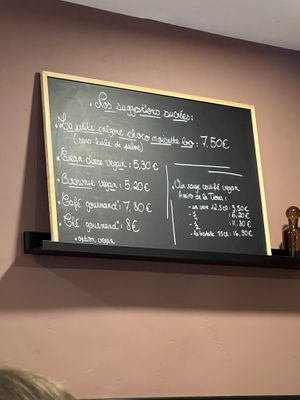 • Nos suggestions sucrées :
• La petite crêpine choco noisette bio : 7,50€
(sans huile de palme)
• vegan : 5,30€
• Brownie vegan : 5,20€
• Café gourmand* : 7,80€
• Thé gourmand* : 8€
* option vegan
• Un rouge certifié vegan
Amis de la Tierra :
- un verre 12,5cl :
: 11,80€
- la bouteille 75cl : 16,90€